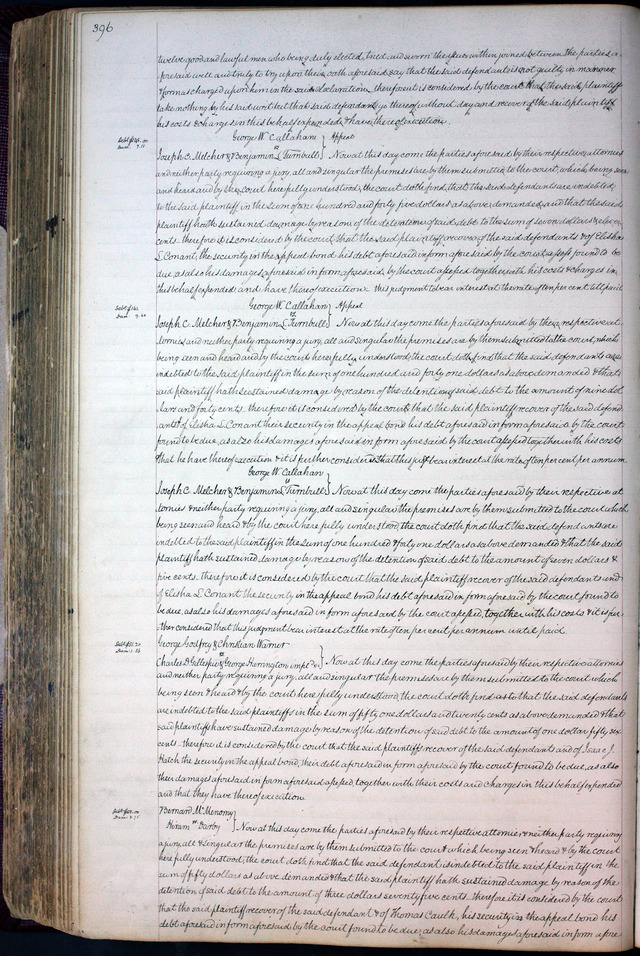 396
twelve good and lawful men who being duly elected, tried and sworn the issue within joined between the parties a-
foresaid well and truly to try upon their oath aforesaid, say that the said defendant is not guilty in manner
& form as charged upon him in the said declaration, therefore it is considered by the court that the said plaintiff
take nothing by his said writ but that said defendant go thereof without day and recover of the said plaintiff
his costs & charges in this behalf expended & have thereof execution.
George W Callahan } Appeal
Joseph C. Melcher & Benjamin L Turnbull } Now at this day come the parties aforesaid by their respective attornies
and neither party requiring a jury, all and singular the premises are by them submitted to the court, which being seen
and heard and by the court here fully understood, the court doth find, that the said defendants are indebted
to the said plaintiff in the sum of one hundred and forty five dollars as above demanded, and that the said
plaintiff hath sustained damage by reason of the detention of said debt to the sum of seven dollars & eleven
cents. therefore it is considered by the court that the said plaintiff recover of the said defendants & of Elisha
L Conant, the security in the appeal bond his debt aforesaid in form aforesaid by the court assess found to be
due, as also his damages aforesaid in form aforesaid by the court assessed together with his costs & charges in
this behalf expended; and have thereof execution. this judgment to bear interest at the rate of ten per cent till paid
Debt $141.00
Dam. 9.40
George W Callahan } Appeal
vs
Joseph C. Melcher & Benjamin L Turnbull } Now at this day come the parties aforesaid by their respective at-
tornies and neither party requiring a jury, all and singular the premises are by them submitted to the court, which
being seen and heard and by the court here fully understood, the court doth find that the said defendants are
indebted to the said plaintiff in the sum of one hundred and forty one dollars as above demanded & that the
said plaintiff hath sustained damage by reason of the detention of said debt to the amount of nine dol-
lars and forty cents. therefore it is considered by the court that the said plaintiff recover of the said defend-
ants & of Elisha L Conant their security in the appeal bond his debt aforesaid in form aforesaid by the court
found to be due, as also his damages aforesaid in form aforesaid by the court assessed together with his costs
& that he have thereof execution & it is further considered that this judgt bear interest at the rate of ten per cent per annum
George W Callahan
vs
Joseph C. Melcher & Benjamin L Turnbull } Now at this day come the parties aforesaid by their respective at-
tornies & neither party requiring a jury, all and singular the premises are by them submitted to the court which
being seen and heard & by the court here fully understood, the court doth find that the said defendants are
indebted to the said plaintiff in the sum of one hundred & forty one dollars as above demanded & that the said
plaintiff hath sustained damage by reason of the detention of said debt to the amount of seven dollars &
five cents. therefore it is considered by the court that the said plaintiff recover of the said defendants and
of Elisha L Conant the security in the appeal bond his debt aforesaid in form aforesaid by the court found to
be due, as also his damages aforesaid in form aforesaid by the court assessed, together with his costs & it is fur-
ther considered that this judgment bear interest at the rate of ten per cent per annum until paid.
Debt $51.20
Dam. 1.56
George Godfrey & Christian Warner
vs
Charles D Gillespie & George Herrington impl'd } Now at this day come the parties aforesaid by their respective attornies
and neither party requiring a jury, all and singular the premises are by them submitted to the court which
being seen & heard & by the court here fully understood, the court doth find as to that the said defendants
are indebted to the said plaintiffs in the sum of fifty one dollars and twenty cents as above demanded & that
said plaintiffs have sustained damage by reason of the detention of said debt to the amount of one dollar fifty six
cents. therefore it is considered by the court that the said plaintiffs recover of the said defendants and of Isaac J.
Hatch the security in the appeal bond, their debt aforesaid in form aforesaid by the court found to be due, as also
their damages aforesaid in form aforesaid assessed, together with their costs and charges in this behalf expended
and that they have thereof execution.
Debt $50.00
Dam. 3.75
Bernard McMenomy
vs
Hiram Darby } Now at this day come the parties aforesaid by their respective attornies & neither party requiring
a jury, all & singular the premises are by them submitted to the court which being seen & heard & by the court
here fully understood, the court doth find that the said defendant is indebted to the said plaintiff in the
sum of fifty dollars as above demanded & that the said plaintiff hath sustained damage by reason of the
detention of said debt to the amount of three dollars seventy five cents. therefore it is considered by the court
that the said plaintiff recover of the said defendant & of Thomas Caulk, his security in the appeal bond his
debt aforesaid in form aforesaid by the court found to be due, as also his damages aforesaid in form afore